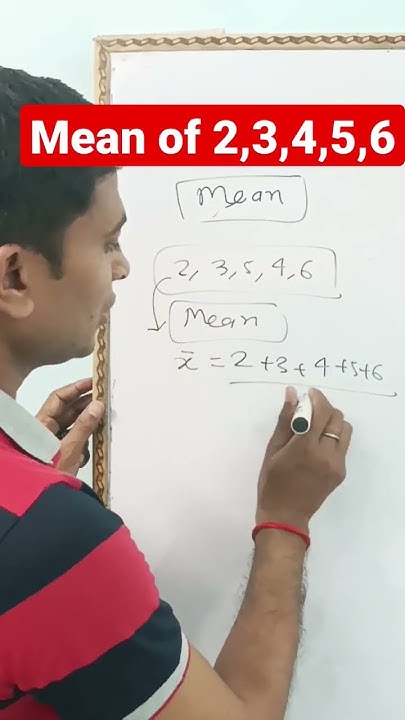 Mean of 2,3,4,5,6
Mean
2, 3, 5, 4, 6
Mean
x̄ = 2+3+4+5+6